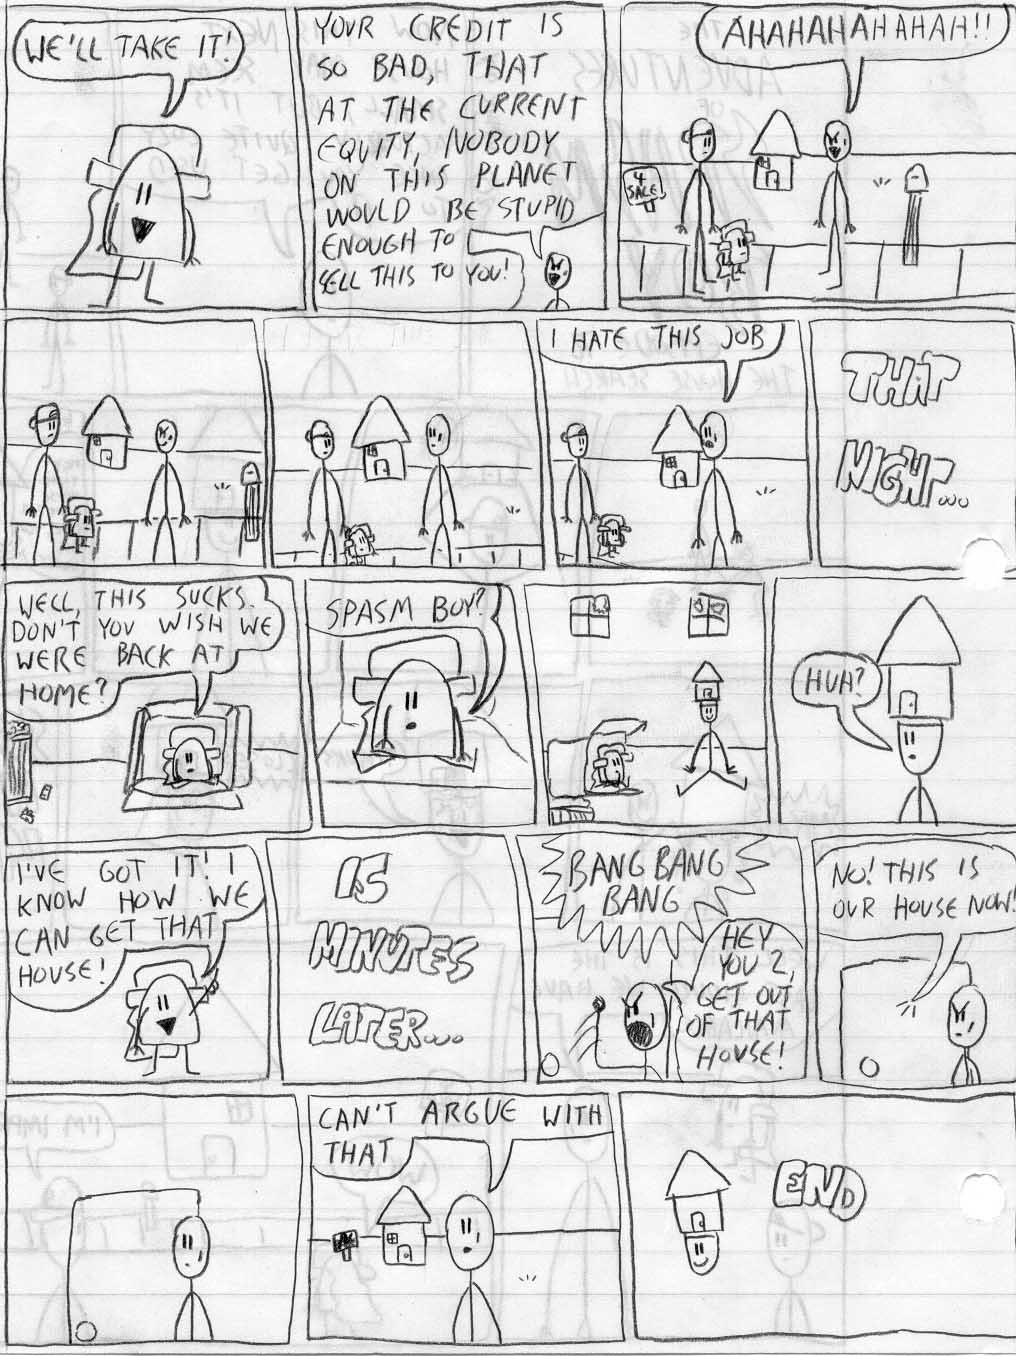 WE'LL TAKE IT!
YOUR CREDIT IS
SO BAD, THAT
AT THE CURRENT
EQUITY, NOBODY
ON THIS PLANET
WOULD BE STUPID
ENOUGH TO
SELL THIS TO YOU!
AHAHAHAHAHAH!!
4
SALE
I HATE THIS JOB
THAT
NIGHT...
WELL, THIS SUCKS.
DON'T YOU WISH WE
WERE BACK AT
HOME?
SPASM BOY?
HUH?
I'VE GOT IT! I
KNOW HOW WE
CAN GET THAT
HOUSE!
15
MINUTES
LATER...
BANG BANG
BANG
HEY
YOU 2,
GET OUT
OF THAT
HOUSE!
NO! THIS IS
OUR HOUSE NOW!
CAN'T ARGUE WITH
THAT
END